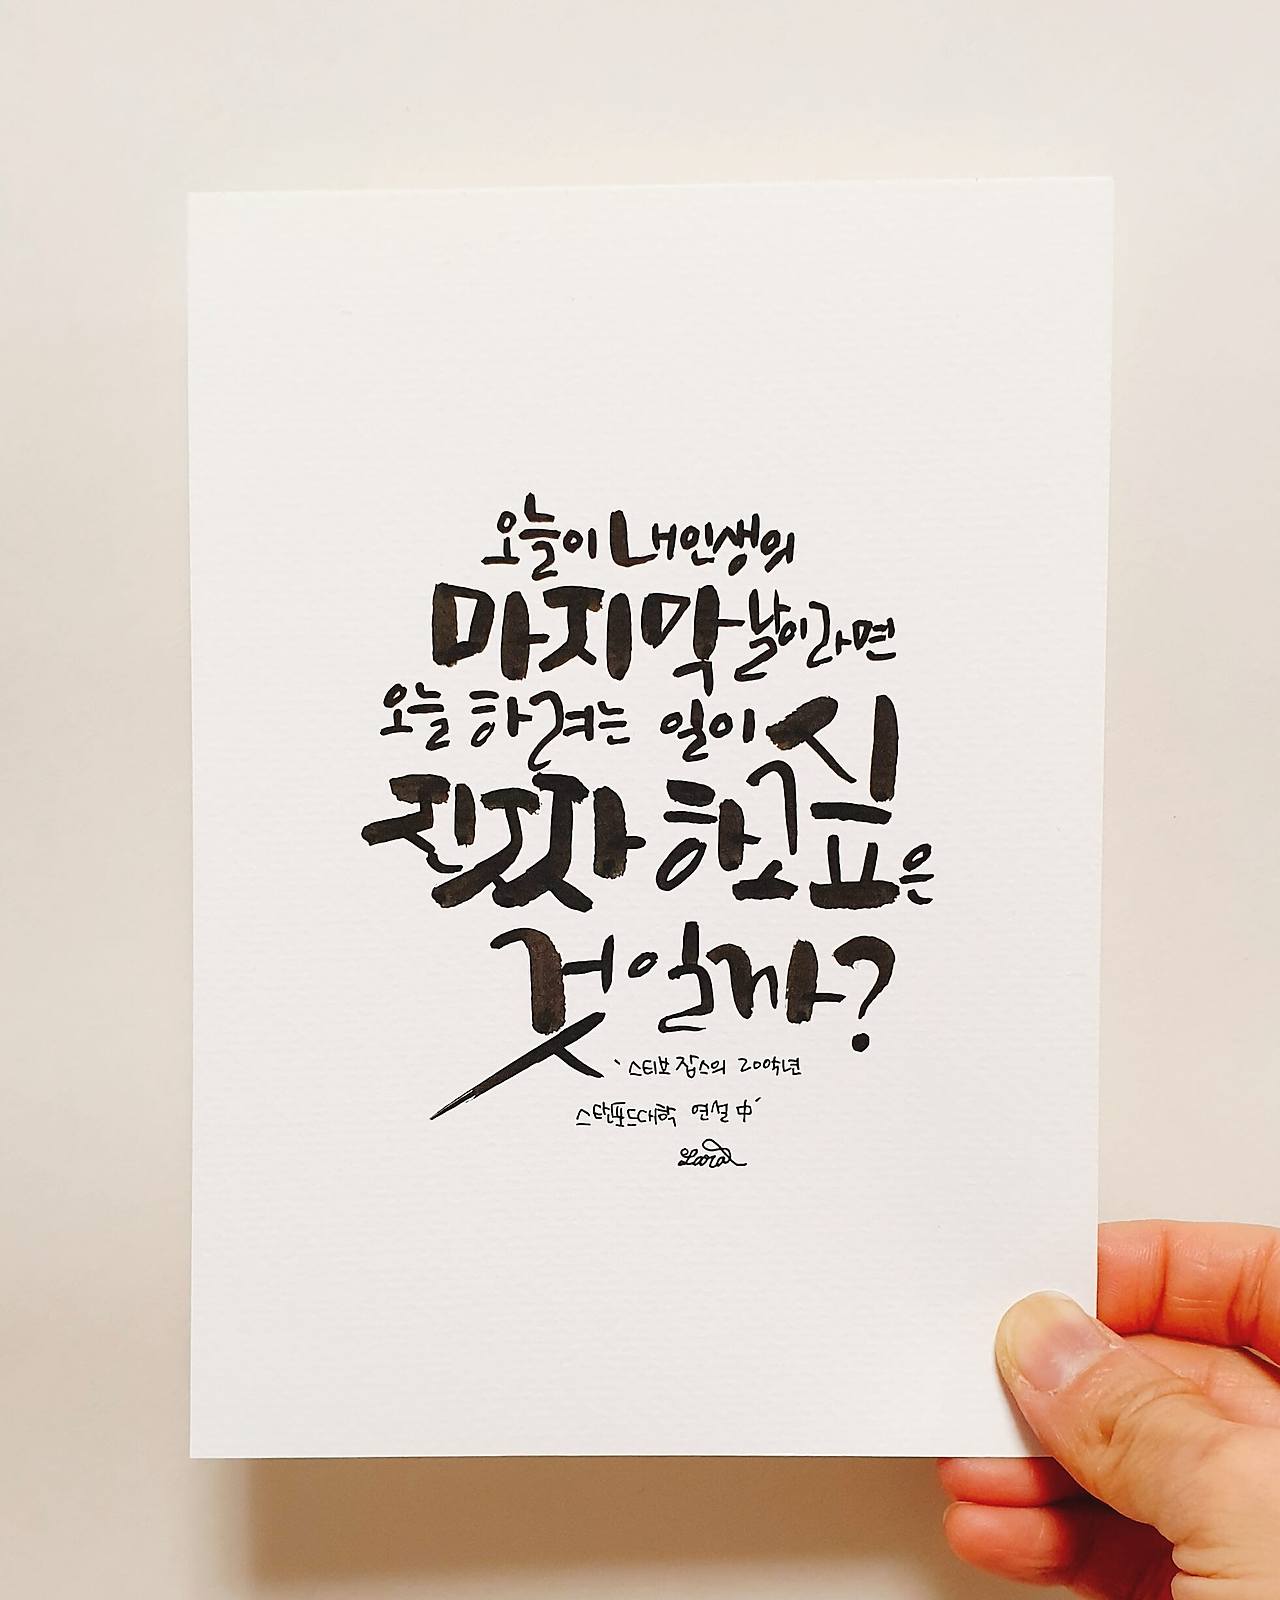 오늘이 내 인생의
마지막 날이라면
오늘 하려는 일이
진짜 하고 싶은
것일까?
`스티브 잡스의 2005년
스탠포드대학 연설 中´
Lara